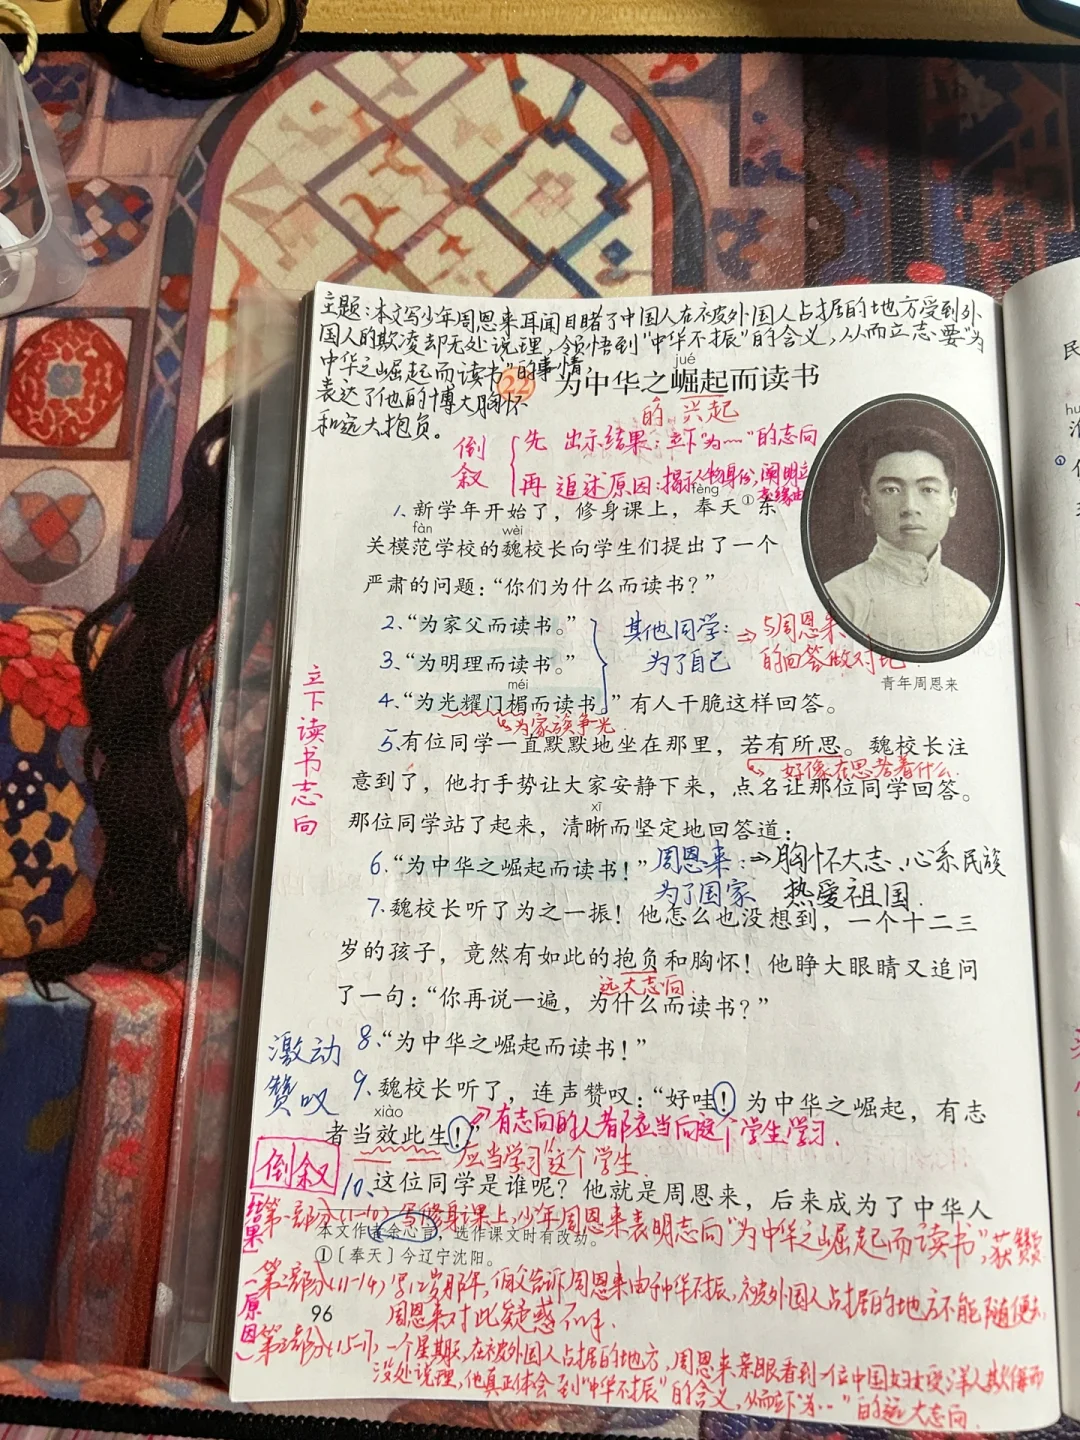 主题:本文写少年周恩来耳闻目睹了中国人在被外国人占据的地方受到外
国人的欺凌却无处说理,领悟到"中华不振"的含义,从而立志要"为
中华之崛起而读书"的事情,
表达了他的博大胸怀
和远大抱负。
jué
22 为中华之崛起而读书
的 兴起
倒叙
先 出示结果:立下"为……"的志向
再 追述原因:揭示人物身份,阐明立
志缘由
fèng
1、新学年开始了,修身课上,奉天①东
fàn wèi
关模范学校的魏校长向学生们提出了一个
严肃的问题:“你们为什么而读书?”
2、“为家父而读书。”
3、“为明理而读书。”
其他同学:
为了自己
⇒与周恩来
的回答做对比.
青年周恩来
méi
4、“为光耀门楣而读书。”有人干脆这样回答。
为家族争光.
5、有位同学一直默默地坐在那里,若有所思。魏校长注
好像在思考着什么.
意到了,他打手势让大家安静下来,点名让那位同学回答。
xī
那位同学站了起来,清晰而坚定地回答道:
立下读书志向
6、“为中华之崛起而读书!”
周恩来:⇒胸怀大志、心系民族
为了国家 热爱祖国.
7、魏校长听了为之一振!他怎么也没想到,一个十二三
岁的孩子,竟然有如此的抱负和胸怀!他睁大眼睛又追问
远大志向.
了一句:“你再说一遍,为什么而读书?”
8、“为中华之崛起而读书!”
激动
赞叹
9、魏校长听了,连声赞叹:“好哇!为中华之崛起,有志
xiào
者当效此生!”
⇒有志向的人都应当向这个学生学习.
应当学习这个学生.
倒叙
10、这位同学是谁呢?他就是周恩来,后来成为了中华人
(结果)
第一部分(1-10)写修身课上,少年周恩来表明志向"为中华之崛起而读书",获赞叹
本文作者余心言,选作课文时有改动。
①〔奉天〕今辽宁沈阳。
(原因)
第2部分(11-14)写12岁那年,伯父告诉周恩来由于中华不振,被外国人占据的地方不能随便去,
96
周恩来对此疑惑不解.
一个星期天,在被外国人占据的地方,周恩来亲眼看到一位中国妇女受洋人欺侮而
没处说理,他真正体会到"中华不振"的含义,从而立下"为……"的远大志向.